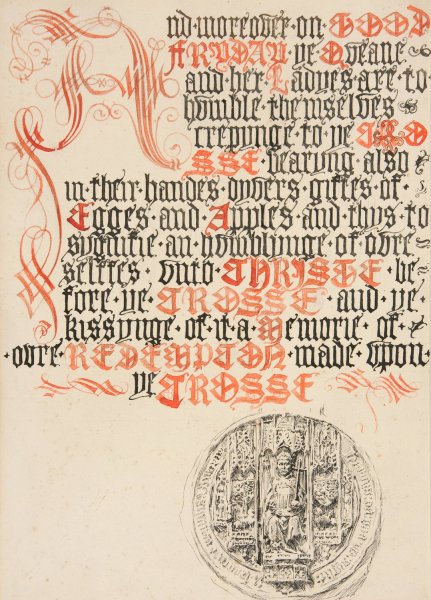 And·moreover·on·GOOD
FRYDAY·ye·Qveane
and·her·Ladyes·are·to
hvmble·themselves
crepinge·to·ye·CRO
SSE·bearyng·also
in·their·handes·dyvers·giftes·of
Egges·and·Apples·and·thys·to
sygnifie·an·hvmblynge·of·ovre
selffes·vnto·CHRISTE·be
fore·ye·CROSSE·and·ye·
kissynge·of·it·a·Memorie·of·
·ovre·REDEMPTON·made·vpon·
ye·CROSSE